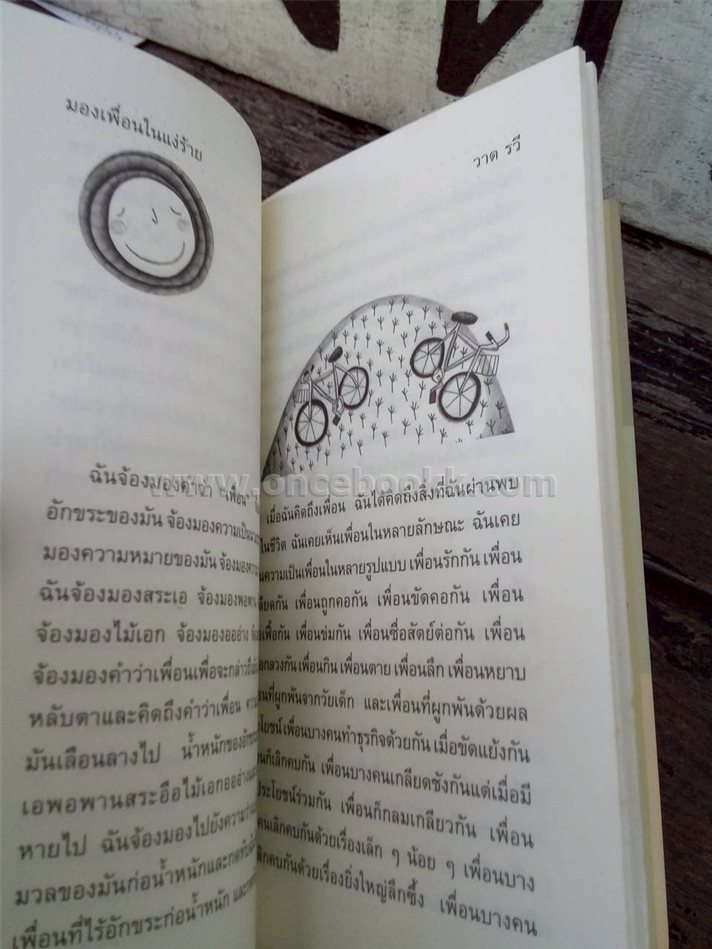 มองเพื่อนในแง่ร้าย
ฉันจ้องมองคำว่า "เพื่อน"
อักขระของมัน จ้องมองความเป็น
มองความหมายของมัน จ้องมอง
ฉันจ้องมองสระเอ จ้องมองพอพาน
จ้องมองไม้เอก จ้องมองออ่าง
จ้องมองคำว่าเพื่อนเพื่อจะกล่าวถึง
หลับตาและคิดถึงคำว่าเพื่อน
มันเลือนลางไป น้ำหนักของ
เอพอพานสระอือไม้เอกออ่าง
หายไป ฉันจ้องมองไปยังความ
มวลของมันก่อน้ำหนักและกดทับ
เพื่อนที่ไร้อักขระก่อน้ำหนัก และ
วาด รวี
เมื่อฉันคิดถึงเพื่อน ฉันได้คิดถึงสิ่งที่ฉันผ่านพบ
ในชีวิต ฉันเคยเห็นเพื่อนในหลายลักษณะ ฉันเคย
ความเป็นเพื่อนในหลายรูปแบบ เพื่อนรักกัน เพื่อน
กัน เพื่อนถูกคอกัน เพื่อนขัดคอกัน เพื่อน
กัน เพื่อนข่มกัน เพื่อนซื่อสัตย์ต่อกัน เพื่อน
กัน เพื่อนกิน เพื่อนตาย เพื่อนลึก เพื่อนหยาบ
ที่ผูกพันจากวัยเด็ก และเพื่อนที่ผูกพันด้วยผล
เพื่อนบางคนทำธุรกิจด้วยกัน เมื่อขัดแย้งกัน
ก็เลิกคบกัน เพื่อนบางคนเกลียดชังกันแต่เมื่อมี
ประโยชน์ร่วมกัน เพื่อนก็กลมเกลียวกัน เพื่อน
คนเลิกคบกันด้วยเรื่องเล็ก ๆ น้อย ๆ เพื่อนบาง
เลิกคบกันด้วยเรื่องยิ่งใหญ่ลึกซึ้ง เพื่อนบางคน